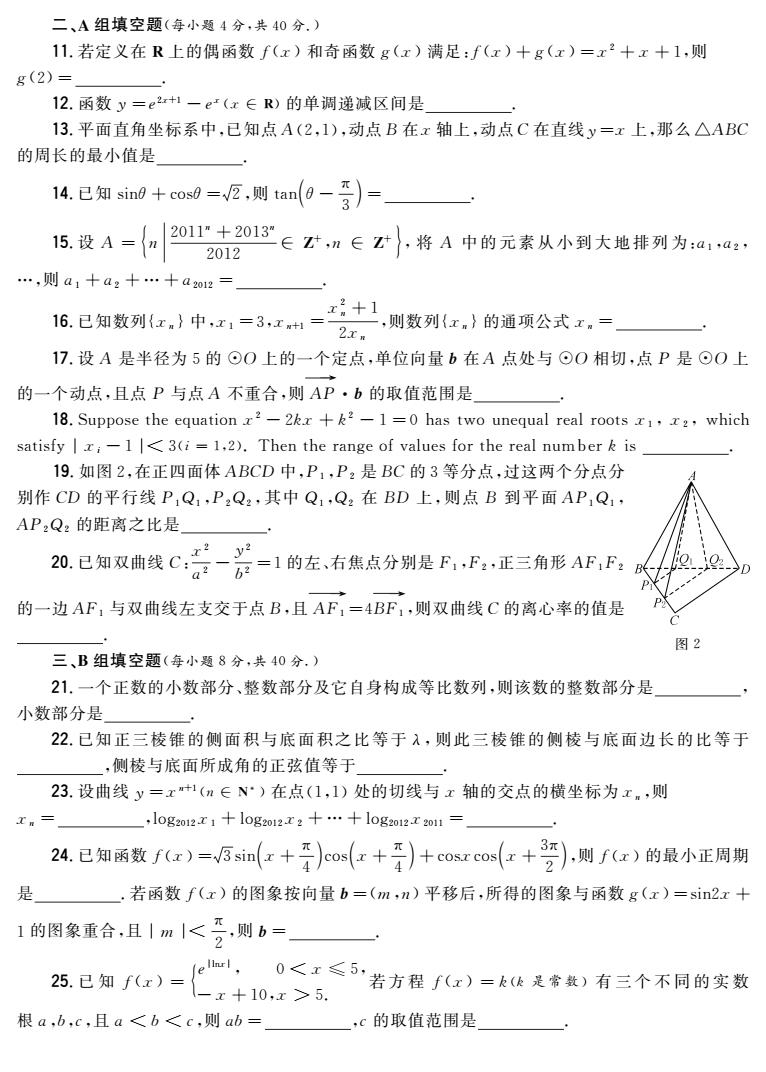 二、A 组填空题(每小题 4 分,共 40 分.)
11. 若定义在 R 上的偶函数 f(x) 和奇函数 g(x) 满足:f(x)+g(x)=x²+x+1,则
g(2)=________.
12. 函数 y=e^{2x+1}-e^x(x∈R) 的单调递减区间是________.
13. 平面直角坐标系中,已知点 A(2,1),动点 B 在 x 轴上,动点 C 在直线 y=x 上,那么△ABC
的周长的最小值是________.
14. 已知 sinθ+cosθ=√2,则 tan(θ-π/3)=________.
15. 设 A={n|(2011^n+2013^n)/2012∈Z⁺,n∈Z⁺},将 A 中的元素从小到大地排列为:a₁,a₂,
…,则 a₁+a₂+…+a₂₀₁₂=________.
16. 已知数列{x_n}中,x₁=3,x_{n+1}=(x_n²+1)/(2x_n),则数列{x_n}的通项公式 x_n=________.
17. 设 A 是半径为 5 的⊙O 上的一个定点,单位向量 b 在 A 点处与⊙O 相切,点 P 是⊙O 上
的一个动点,且点 P 与点 A 不重合,则 \overrightarrow{AP}·b 的取值范围是________.
18. Suppose the equation x²-2kx+k²-1=0 has two unequal real roots x₁, x₂, which
satisfy |x_i-1|<3(i=1,2). Then the range of values for the real number k is ________.
19. 如图 2,在正四面体 ABCD 中,P₁,P₂ 是 BC 的 3 等分点,过这两个分点分
别作 CD 的平行线 P₁Q₁,P₂Q₂,其中 Q₁,Q₂ 在 BD 上,则点 B 到平面 AP₁Q₁,
AP₂Q₂ 的距离之比是________.
20. 已知双曲线 C:x²/a²-y²/b²=1 的左、右焦点分别是 F₁,F₂,正三角形 AF₁F₂
的一边 AF₁ 与双曲线左支交于点 B,且 \overrightarrow{AF₁}=4\overrightarrow{BF₁},则双曲线 C 的离心率的值是
________.
A
B
Q₁
Q₂
D
P₁
P₂
C
图 2
三、B 组填空题(每小题 8 分,共 40 分.)
21. 一个正数的小数部分、整数部分及它自身构成等比数列,则该数的整数部分是________,
小数部分是________.
22. 已知正三棱锥的侧面积与底面积之比等于 λ,则此三棱锥的侧棱与底面边长的比等于
________,侧棱与底面所成角的正弦值等于________.
23. 设曲线 y=x^{n+1}(n∈N*)在点(1,1)处的切线与 x 轴的交点的横坐标为 x_n,则
x_n=________,log₂₀₁₂x₁+log₂₀₁₂x₂+…+log₂₀₁₂x₂₀₁₁=________.
24. 已知函数 f(x)=√3sin(x+π/4)cos(x+π/4)+cosxcos(x+3π/2),则 f(x) 的最小正周期
是________.若函数 f(x) 的图象按向量 b=(m,n) 平移后,所得的图象与函数 g(x)=sin2x+
1 的图象重合,且|m|<π/2,则 b=________.
25. 已知 f(x)={e^{|lnx|}, 0<x≤5, -x+10,x>5. 若方程 f(x)=k(k 是常数)有三个不同的实数
根 a,b,c,且 a<b<c,则 ab=________,c 的取值范围是________.